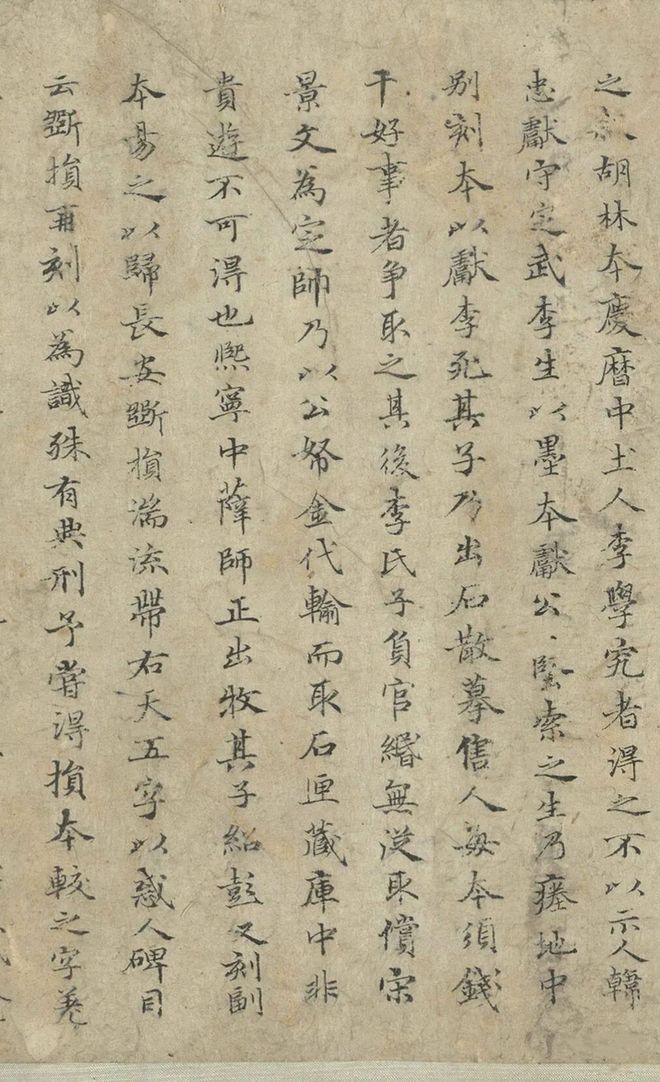 之 胡林本慶曆中土人李學究者得之不以示人韓
忠獻守定武李生以墨本獻公〻堅索之生乃瘞地中
別刻本以獻李死其子乃出石散摹售人每本須錢
千好事者争取之其後李氏子負官緡無從取償宋
景文為定帥乃以公帑金代輸而取石匣藏庫中非
貴遊不可得也熙寧中薛師正出牧其子紹彭又刻副
本易之以歸長安斲損湍流帶右天五字以惑人碑目
云斲損再刻以為識殊有典刑予嘗得損本較之字差